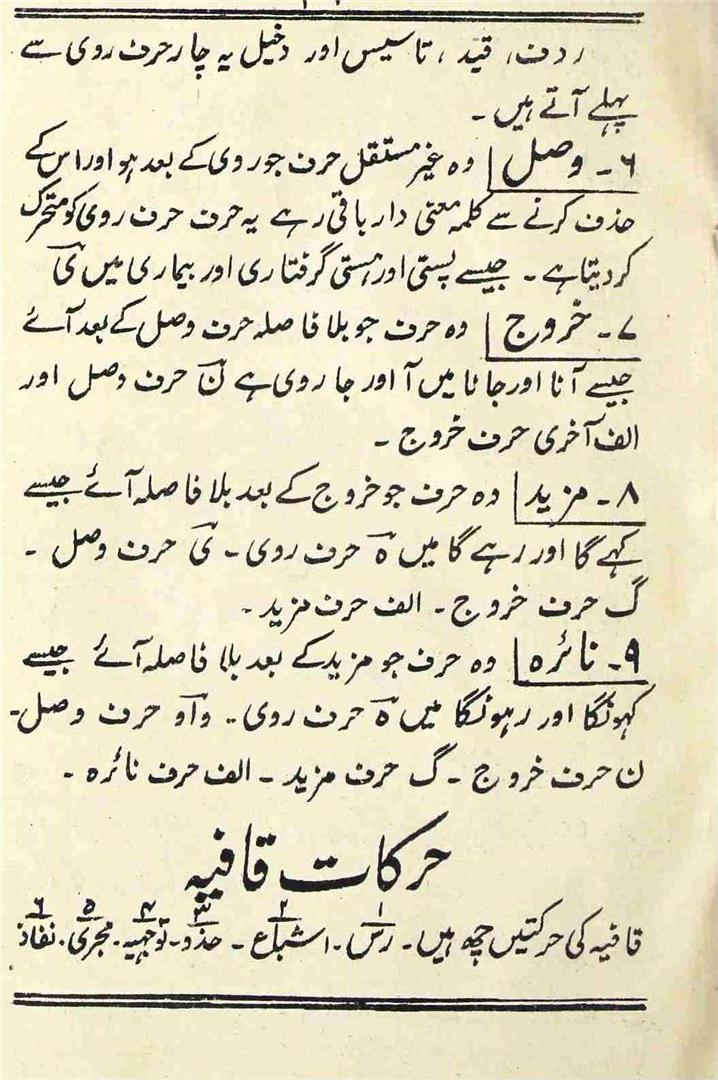 ردف، قید، تاسیس اور دخیل یہ چار حرف روی سے
پہلے آتے ہیں۔
۶۔ وصل وہ غیر مستقل حرف جو روی کے بعد ہو اور اس کے
حذف کرنے سے کلمہ معنی دار باقی رہے یہ حرف حرف روی کو متحرک
کر دیتا ہے۔ جیسے پستی اور ہستی گرفتاری اور بیماری میں ی
۷۔ خروج وہ حرف جو بلا فاصلہ حرف وصل کے بعد آئے
جیسے آنا اور جانا میں آ اور جا روی ہے ن حرف وصل اور
الف آخری حرف خروج۔
۸۔ مزید وہ حرف جو خروج کے بعد بلا فاصلہ آئے جیسے
کہے گا اور رہے گا میں ہ حرف روی۔ ی حرف وصل۔
گ حرف خروج۔ الف حرف مزید۔
۹۔ نائرہ وہ حرف جو مزید کے بعد بلا فاصلہ آئے جیسے
کہونگا اور رہونگا میں ہ حرف روی۔ واو حرف وصل۔
ن حرف خروج۔ گ حرف مزید۔ الف حرف نائرہ۔
حرکات قافیہ
قافیہ کی حرکتیں چھ ہیں۔ ۱ رس۔ ۲ اشباع۔ ۳ حذو۔ ۴ توجہیہ۔ ۵ مجری۔ ۶ نفاذ